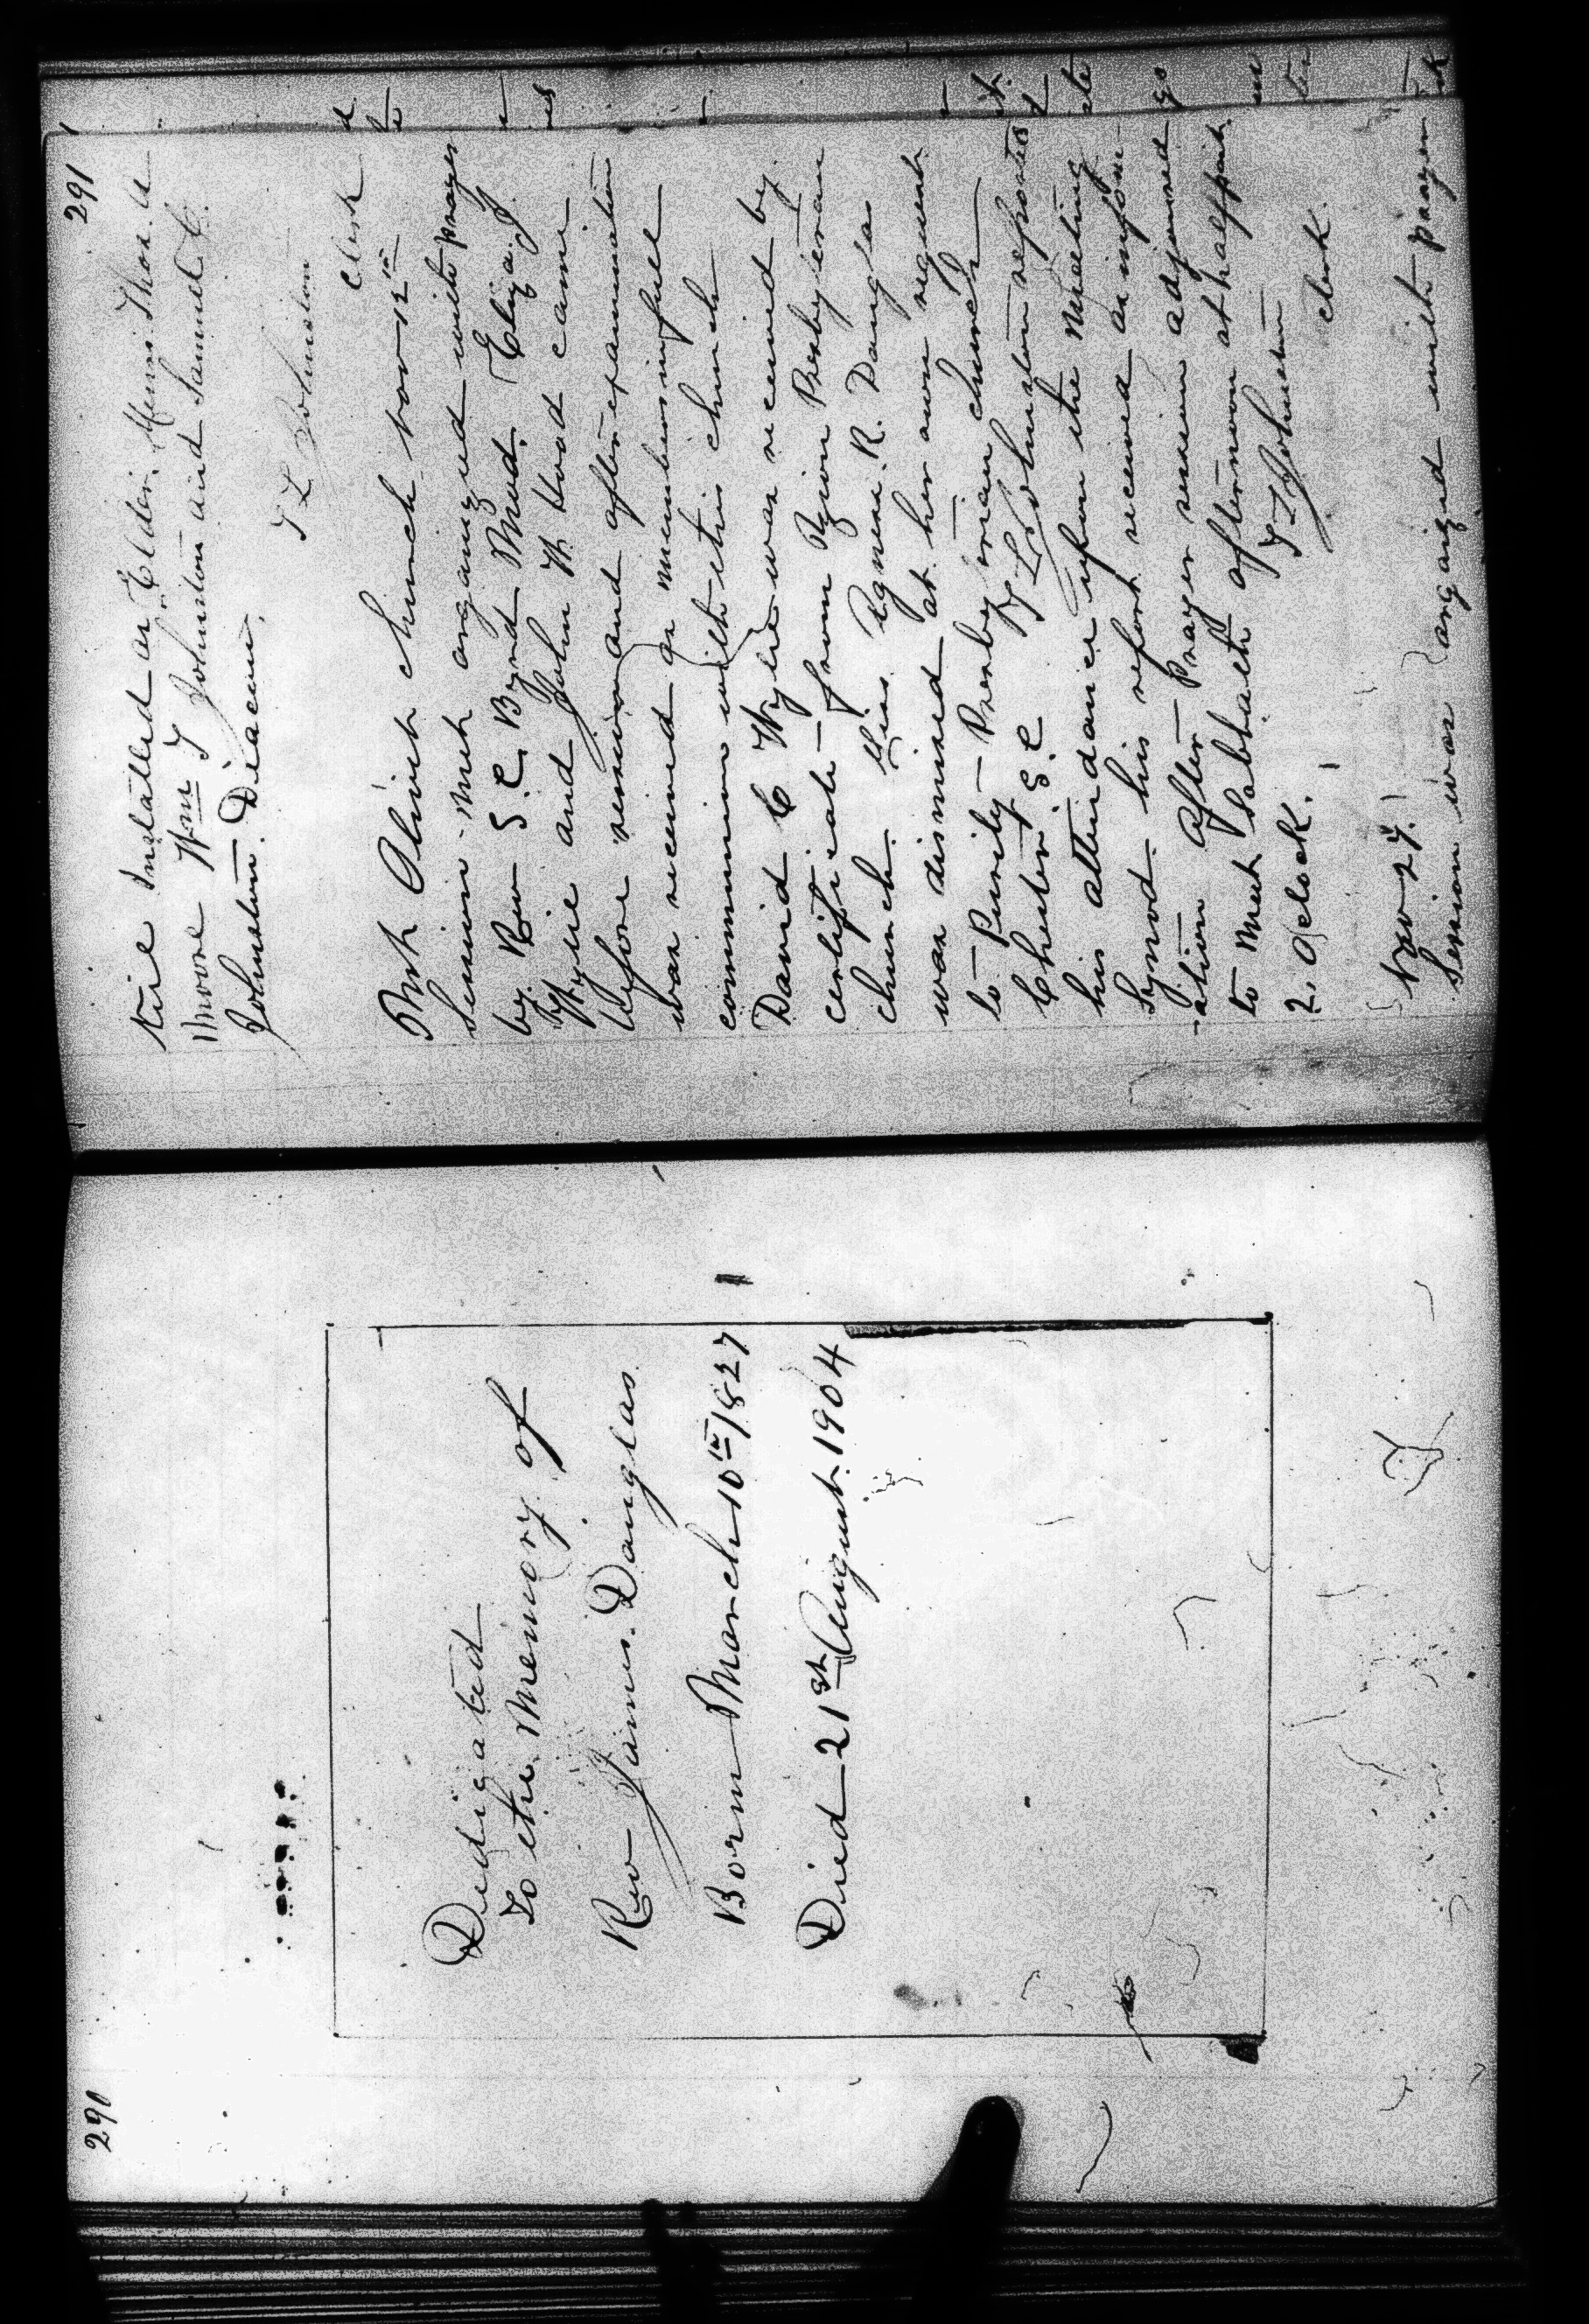 290
Dedicated
To the Memory of
Rev James Douglas
Born March 10th 1827
Died 21st August 1904
291
Installed as Elders. Messrs Thos. A
Moore Wm T Johnston and Samuel C.
Johnston. Deacons.
T L Johnston
Clerk
Mt Olivet church Nov 12th
Session met organized with prayer
by Rev S. C. Byrd Mod. Eliza. J
Wylie and John W Hood came
before session and after examination
was received as members in full
communion with this church
David C Wylie was received by
certificate from Zion Presbyterian
church. Miss Agnes. R. Douglas
was dismissed at her own request
to Purity Presbyterian church
Chester S. C T L Johnston reported
his attendance upon the Meeting of
Synod. his report received as inform-
-ation After Prayer session adjourned
to Meet Sabbath afternoon at half past
2. Oclock. T L Johnston
clerk.
Nov 27.
Session was organized with prayer